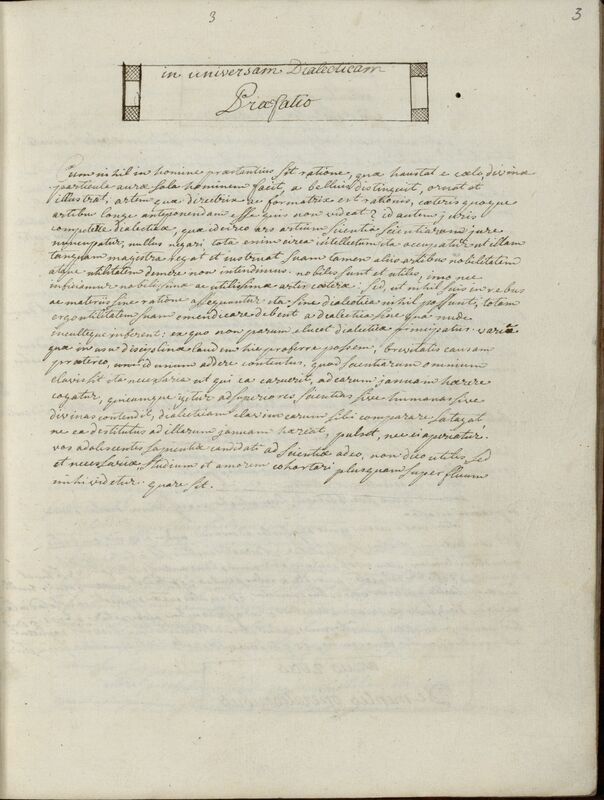 3
3
in universam Dialecticam
Præfatio
Cum nihil in homine præstantius sit ratione, quæ hausta e cælo divinæ
particula auræ sola hominem facit, a belluis distinguit, ornat et
illustrat, artem quæ directrix ac formatrix est rationis, cæteris quoque
artibus longe anteponendam esse quis non videat? id autem juris
competere dialecticæ, quæ idcirco ars artium scientia scientiarum jure
nuncupatur, nullus negari tota enim circa intellectum ita occupatur ut illam
tanquam magistra regat et instruat suam tamen aliis artibus nobilitatem
atque utilitatem demere non intendimus. nobiles sunt et utiles, imo nec
inficiamur nobilissimæ ac utilissimæ artes cæteræ. Sed, ut nihil suis in rebus
ac materiis sine ratione assequuntur ita sine dialectica nihil possunt, totam
ergo utilitatem suam emendicare debent a dialectica sine qua nudæ
incultæque inferent: ex quo non parum elucet dialecticæ principatus. varia
quæ in usu disciplinæ laudem hic proferre possem, brevitatis causam
prætereo, id unum addere contentus, quod scientiarum omnium
clavis sit ita necessaria ut qui ea caruerit, ad earum januam hærere
cogatur, quicumque igitur ad superiores scientias sive humanas sive
divinas contendit, dialecticam clavim earum sibi comparare satagat
ne ea destitutus ad illarum januam hæreat, pulset, nec ei aperiatur.
vos adolescentes sapientiæ candidati ad scientiæ adeo, non dico utilis, sed
et necessariæ studium et amorem cohortari plusquam superfluum
mihi videtur. quare sit.